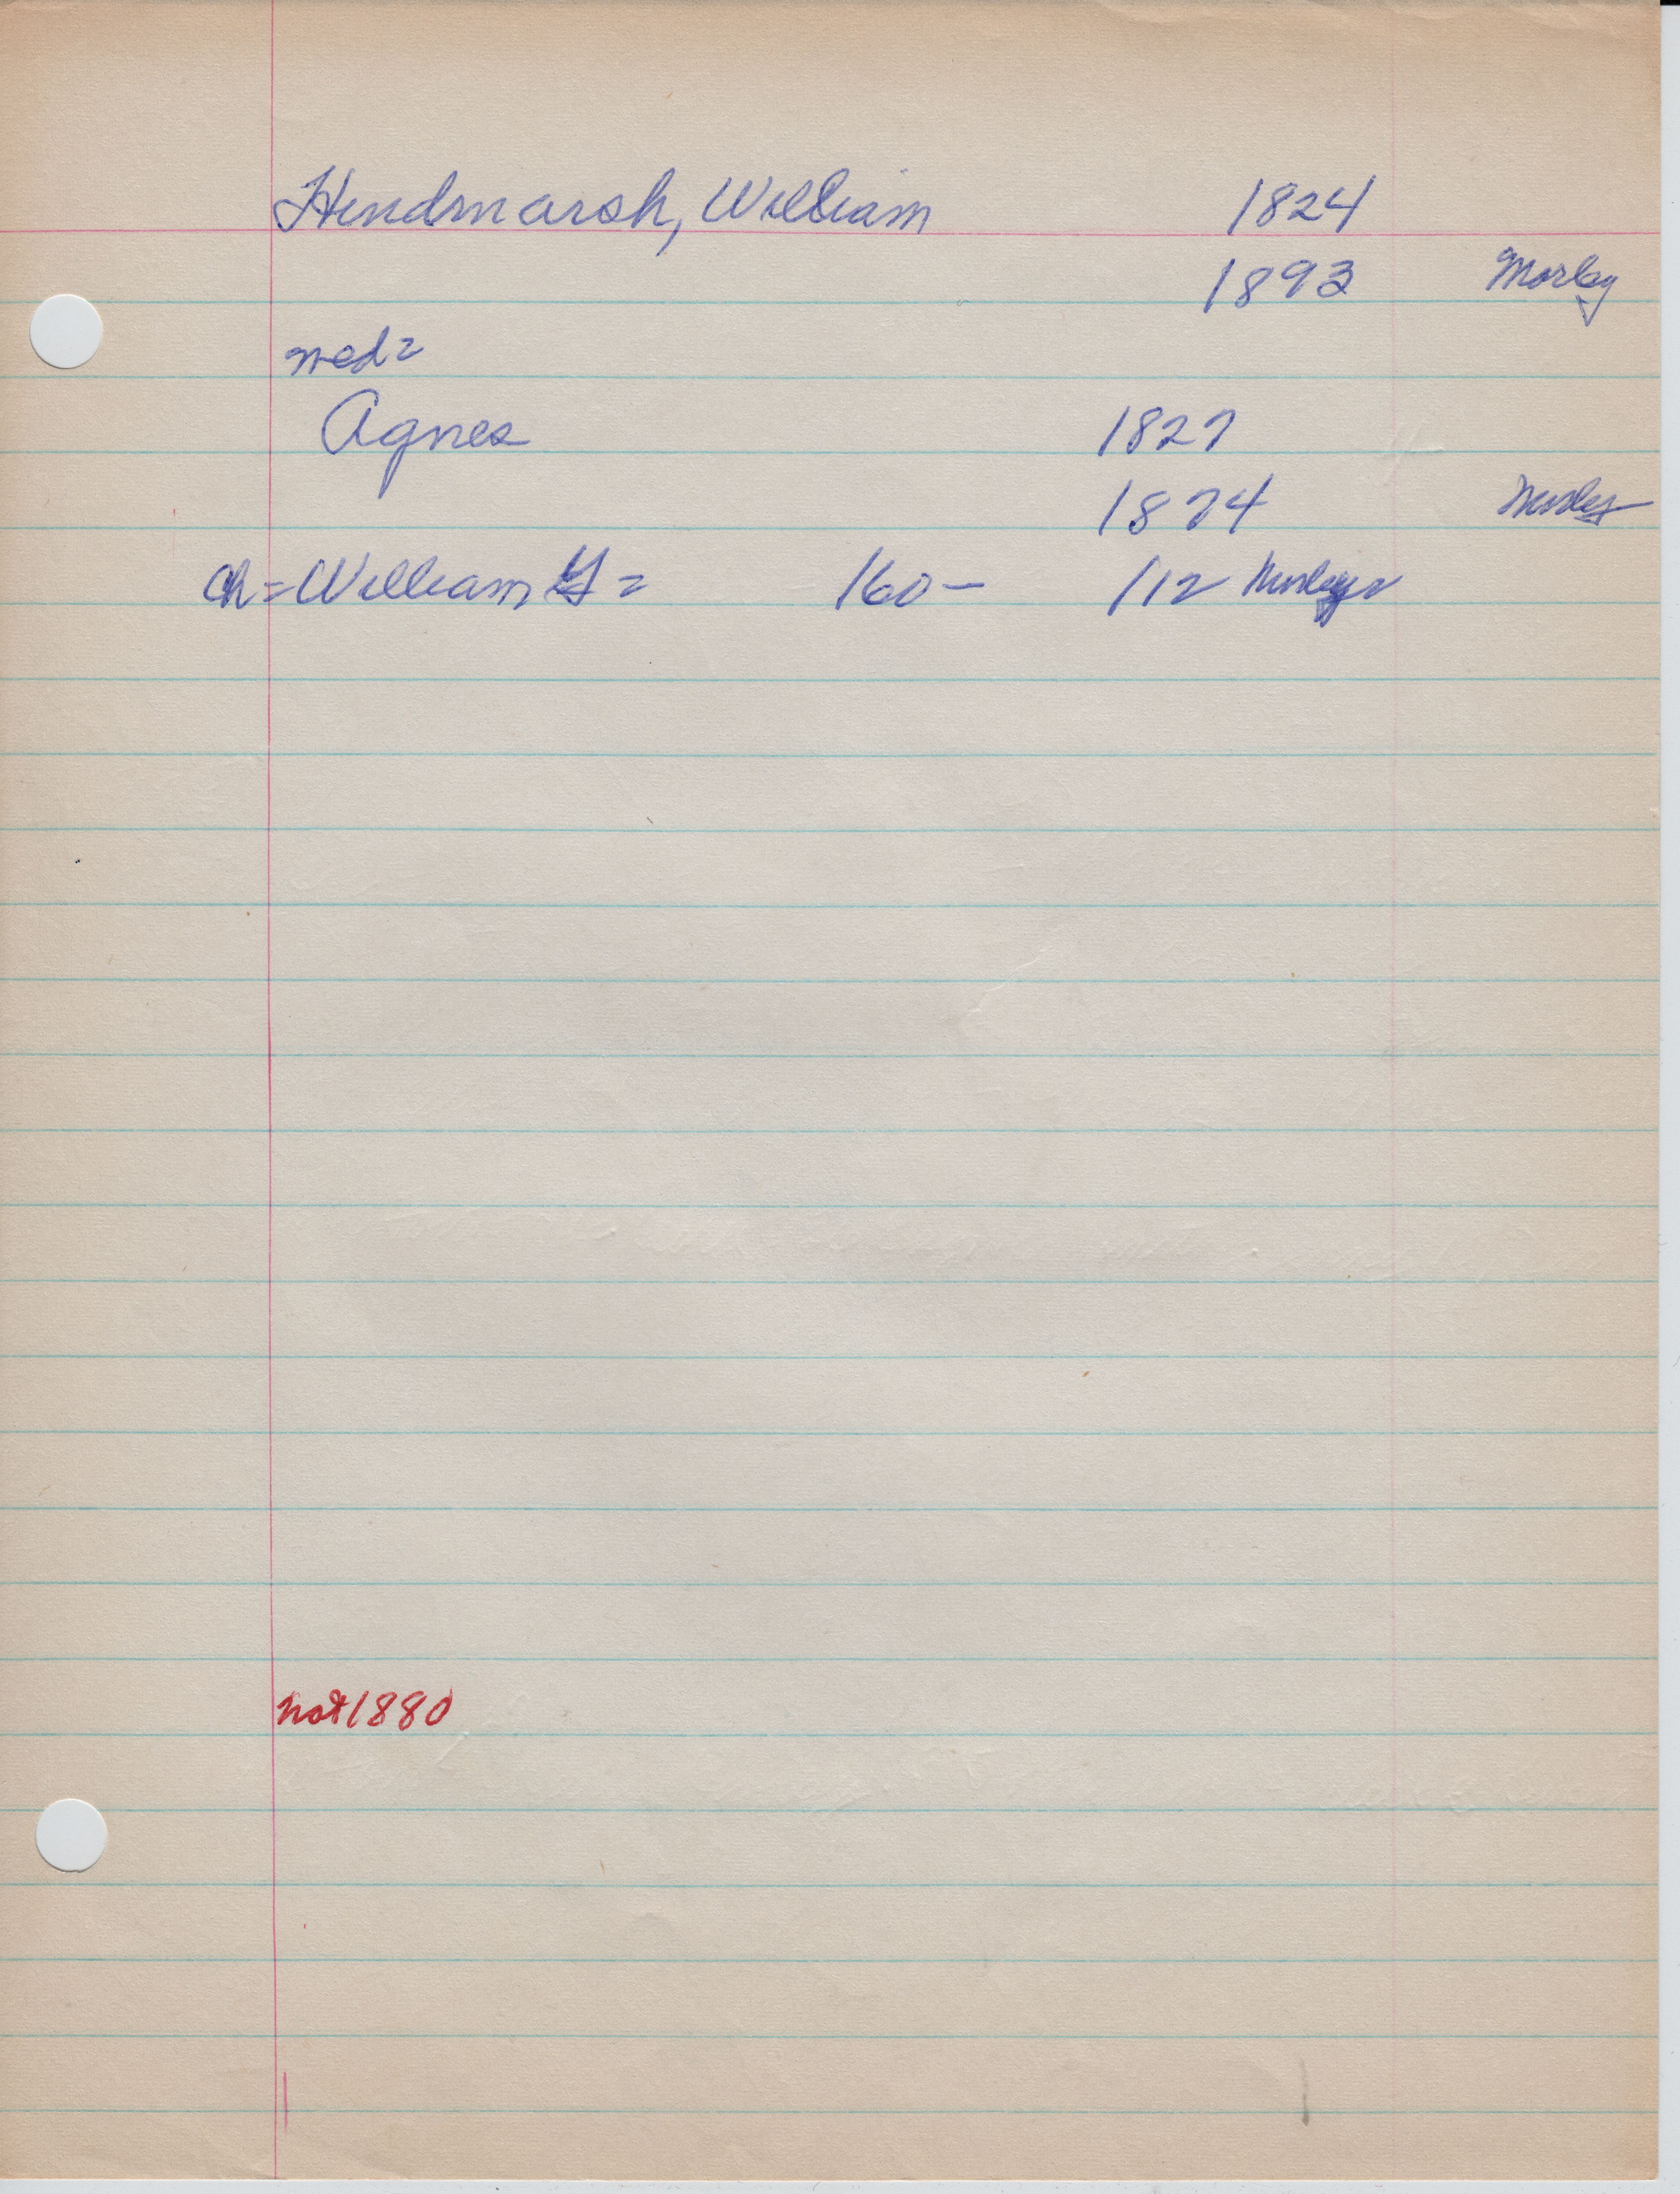 Hindmarsh, William 1824
1893 Morley
med=
Agnes 1827
1874 Morley
ch=William = 160- 112 Morley
not 1880